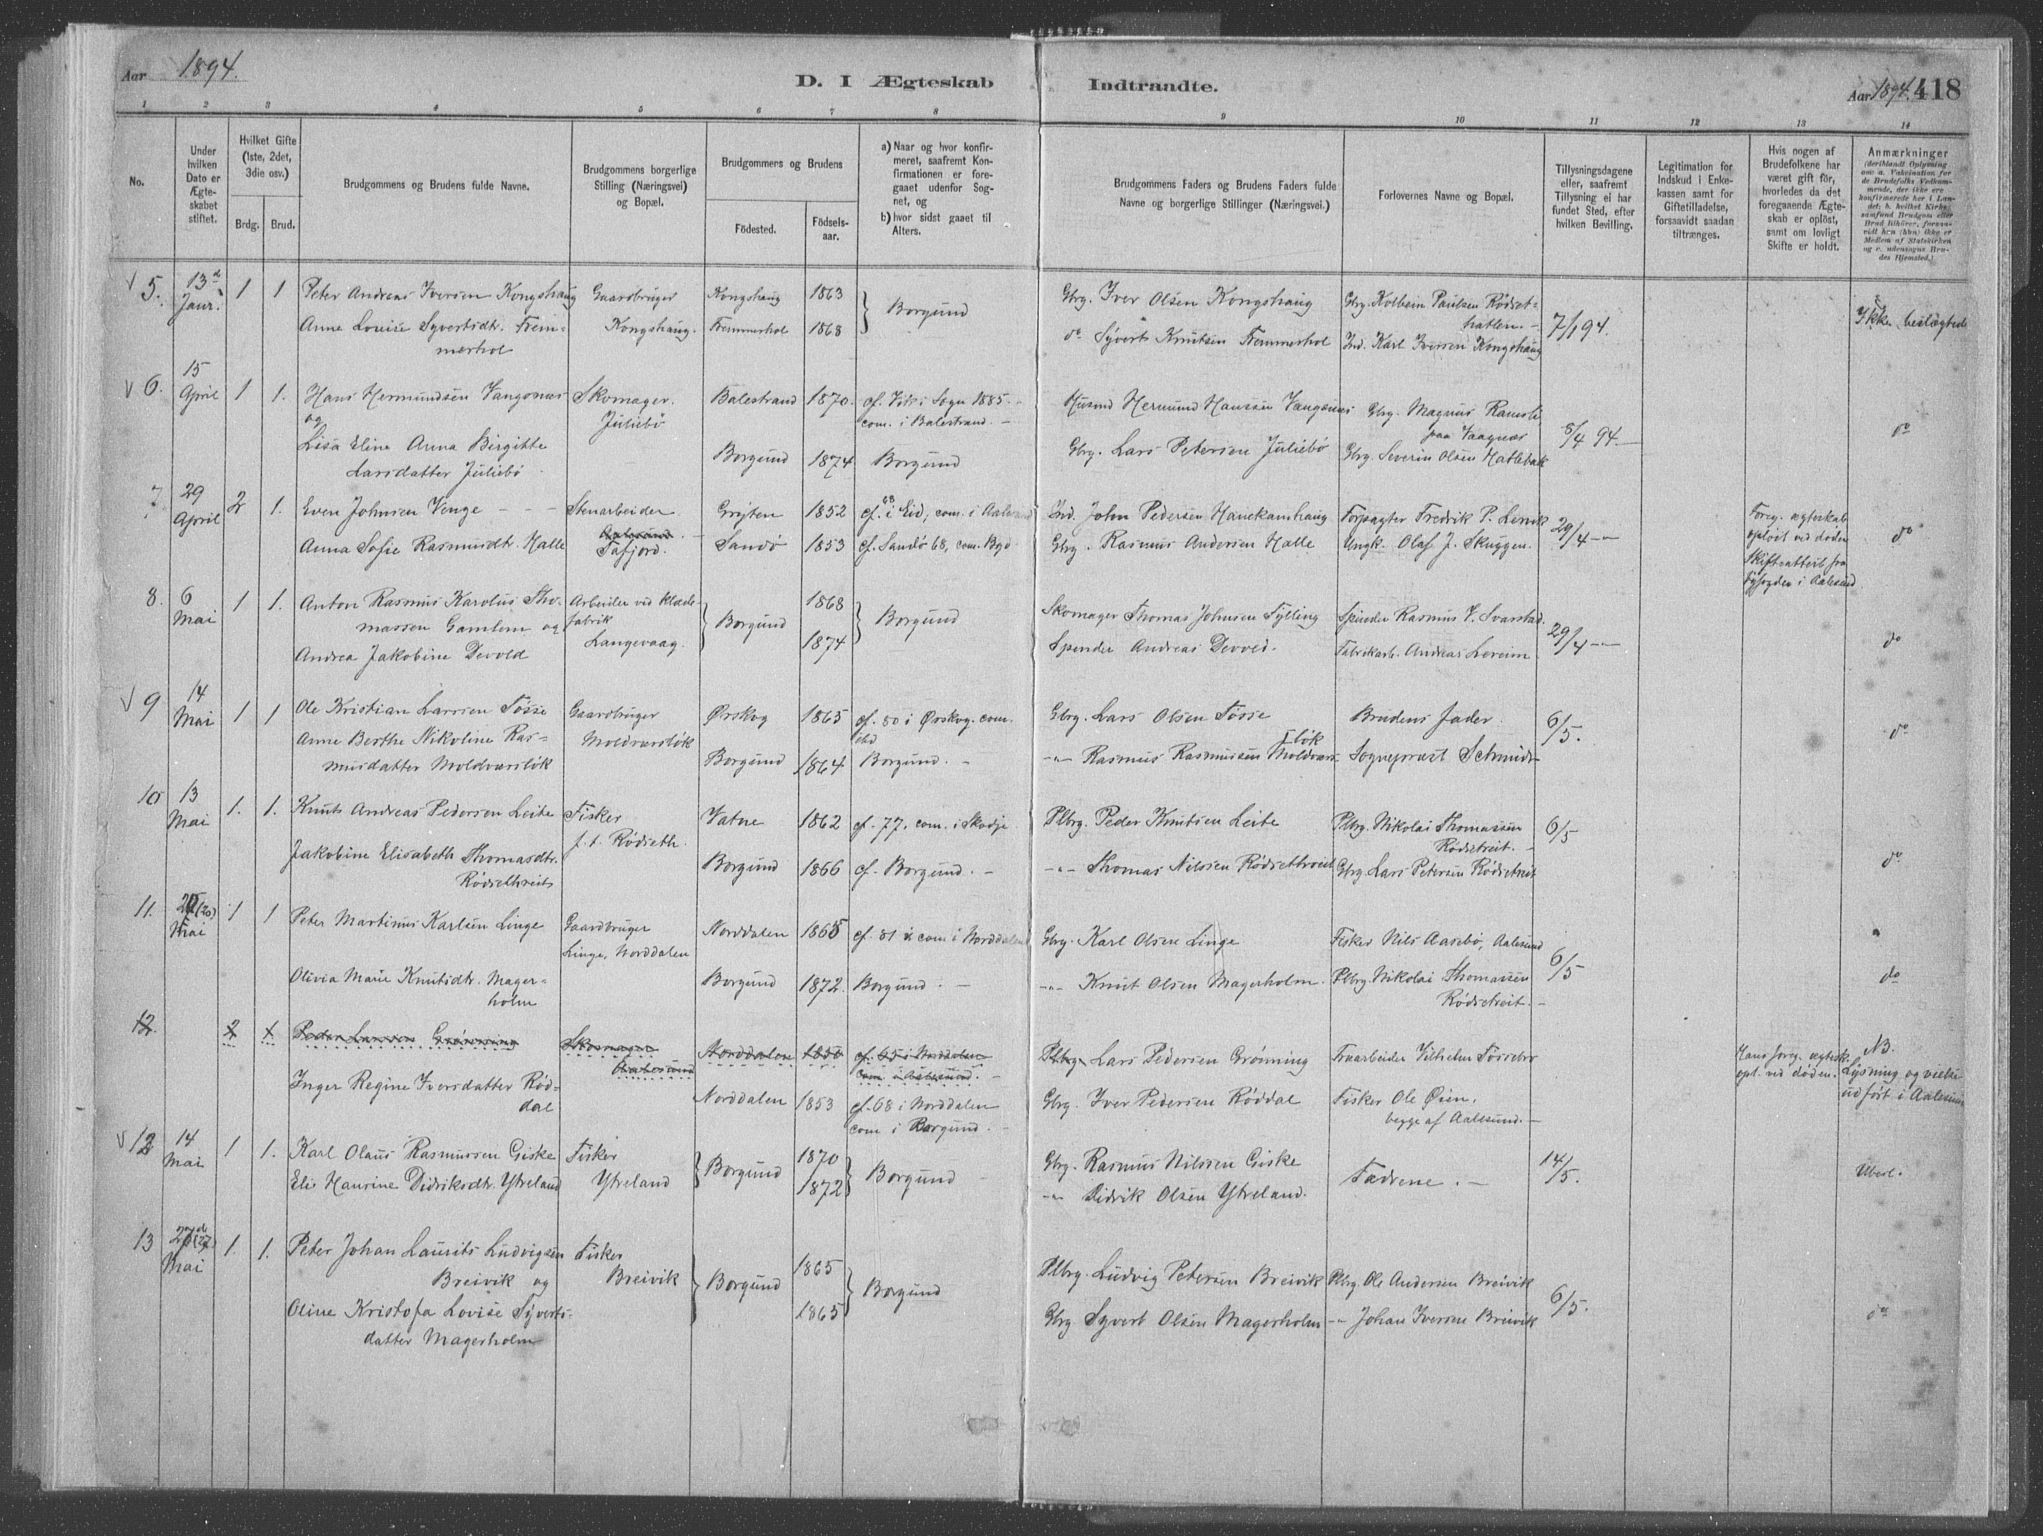 Aar 1894.
D. I Ægteskab Indtrandte.
Aar 1894. 418
1 2 3 4 5 6 7 8 9 10 11 12 13 14
No.
Under hvilken Dato er Ægteskabet stiftet.
Hvilket Gifte (1ste, 2det, 3die osv.)
Brdg. Brud.
Brudgommens og Brudens fulde Navne.
Brudgommens borgerlige Stilling (Næringsvei) og Bopæl.
Brudgommens og Brudens
Födested. Födselsaar.
a) Naar og hvor konfirmeret, saafremt Konfirmationen er foregaaet udenfor Sognet, og
b) hvor sidst gaaet til Alters.
Brudgommens Faders og Brudens Faders fulde Navne og borgerlige Stillinger (Næringsvei.)
Forlovernes Navne og Bopæl.
Tillysningsdagene eller, saafremt Tillysning ei har fundet Sted, efter hvilken Bevilling.
Legitimation for Indskud i Enkekassen samt for Giftetilladelse, forsaavidt saadan tiltrænges.
Hvis nogen af Brudefolkene har været gift för, hvorledes da det foregaaende Ægteskab er oplöst, samt om lovligt Skifte er holdt.
Anmærkninger
5. 13de Janr. 1 1 Peter Andreas Iversen Kongshaug Gaardbruger Kongshaug 1863 Borgund Gbrg. Iver Olsen Kongshaug Gbrg. Kolbein Paulsen Rødset-
Anne Louise Syvertsdt. Frem- Kongshaug. Fremmerhol 1868 do Syvert Knutsen Fremmerhol hatlen. 7/1 94. Ikke beslægtede
merhol Ind. Karl Iversen Kongshaug
6. 15 April 1 1. Hans Hermundsen Vangsnæs Skomager. Balestrand 1870. cf. Vik i Sogn 1885. Husmd Hermund Hanssen Vangsnes Gbrg. Magnus Ramsli
og Juliebö com. i Balestrand. paa Vaagnæs 8/4 94. do
Lisa Eline Anna Birgitte Borgund 1874 Borgund Gbrg. Lars Petersen Juliebö Gbrg. Severin Olsen Hatlebak
Larsdatter Juliebö
7. 29 April 2 1. Even Johnsen Venge Stenarbeider Grytten 1852 cf. 68 i Eid, com. i Aalesund Ind. John Pedersen Hanekamhaug Forpagter Fredrik P. Lervik 29/4 Foreg. ægteskab
Aalesund oplöst ved döden
Anna Sofie Rasmusdt. Halle Tafjord. Sandö 1853 cf. Sandö 68, com. Bgd Gbrg. Rasmus Andersen Halle Ungk. Olaf J. Skuggen. Skifteattest fra do
Byfogden i Aalesund
8. 6 Mai 1 1. Anton Rasmus Karolus Tho- Arbeider ved Klæde- 1868 Skomager Thomas Johnsen Sylling Spinder Rasmus V. Svarstad.
massen Gamlem og fabrik Borgund Borgund 29/4
Andrea Jakobine Devold Langevaag. 1874 Spinder Andreas Devold. Fabrikarb. Andreas Loreim do
9 14 Mai 1 1 Ole Kristian Larsen Tösse Gaardbruger Ørskog 1865 cf. 80 i Ørskog. com. ibd Gbrg. Lars Olsen Tösse Brudens Fader. 6/5. do
Anne Berthe Nikoline Ras- Moldværslök
musdatter Moldværslök Borgund 1864 Borgund. Rasmus Rasmussen Moldværslök Sogneprest Schmidt
10 13 Mai 1. 1. Knut Andreas Pedersen Leite Fisker Vatne 1862 cf. 77, com. i Skodje Plbrg. Peder Knutsen Leite Plbrg. Nikolai Thomassen 6/5
f. t. Rödseth. Rödsetreit.
Jakobine Elisabeth Thomasdt. Borgund 1866 cf. Borgund. Thomas Nilssen Rödsethreit Gbrg. Lars Petersen Rödsetreit do
Rödsethreit
11. (20) Mai 1 1 Peter Martinus Karlsen Linge Gaardbruger Norddalen 1865 cf. 81 & com i Norddalen Gbrg. Karl Olsen Linge Fisker Nils Aasebö, Aalesund 6/5
Linge, Norddalen
Olivia Marie Knutsdt. Mager- Borgund 1872. Borgund. Knut Olsen Magerholm. Plbrg. Nikolai Thomassen do
holm Rödsetreit.
12. 2 1 Peder Larsen Grönning Skomager Norddalen 1850 cf. 65 i Norddalen Plbrg. Lars Pedersen Grönning Træarbeider Vilhelm Tössebro Hans foreg. ægtesk. NB.
Aalesund com. i Aalesund. opl. ved döden. Lysning og vielse
Inger Regine Iversdatter Röd- Norddalen 1853 cf. 68 i Norddalen Gbrg. Iver Pedersen Röddal Fisker Ole Øien, udfört i Aalesund
dal com i Borgund. begge af Aalesund.
12 14 Mai 1 1. Karl Olaus Rasmussen Giske Fisker 1870 Gbrg. Rasmus Nilssen Giske 14/5.
Borgund Borgund Fædrene. Ubesl.
Elie Haurine Didriksdt. Ytreland Ytreland 1872 Didrik Olsen Ytreland.
13 (27) Mai 1. 1. Peter Johan Laurits Ludvigsen Fisker 1865 Plbrg. Ludvig Petersen Breivik Plbrg. Ole Andersen Breivik
Breivik og Breivik Borgund Borgund 6/5. do
Oline Kristofa Lovise Syverts- 1865 Gbrg Syvert Olsen Magerholm Johan Iversen Breivik
datter Magerholm